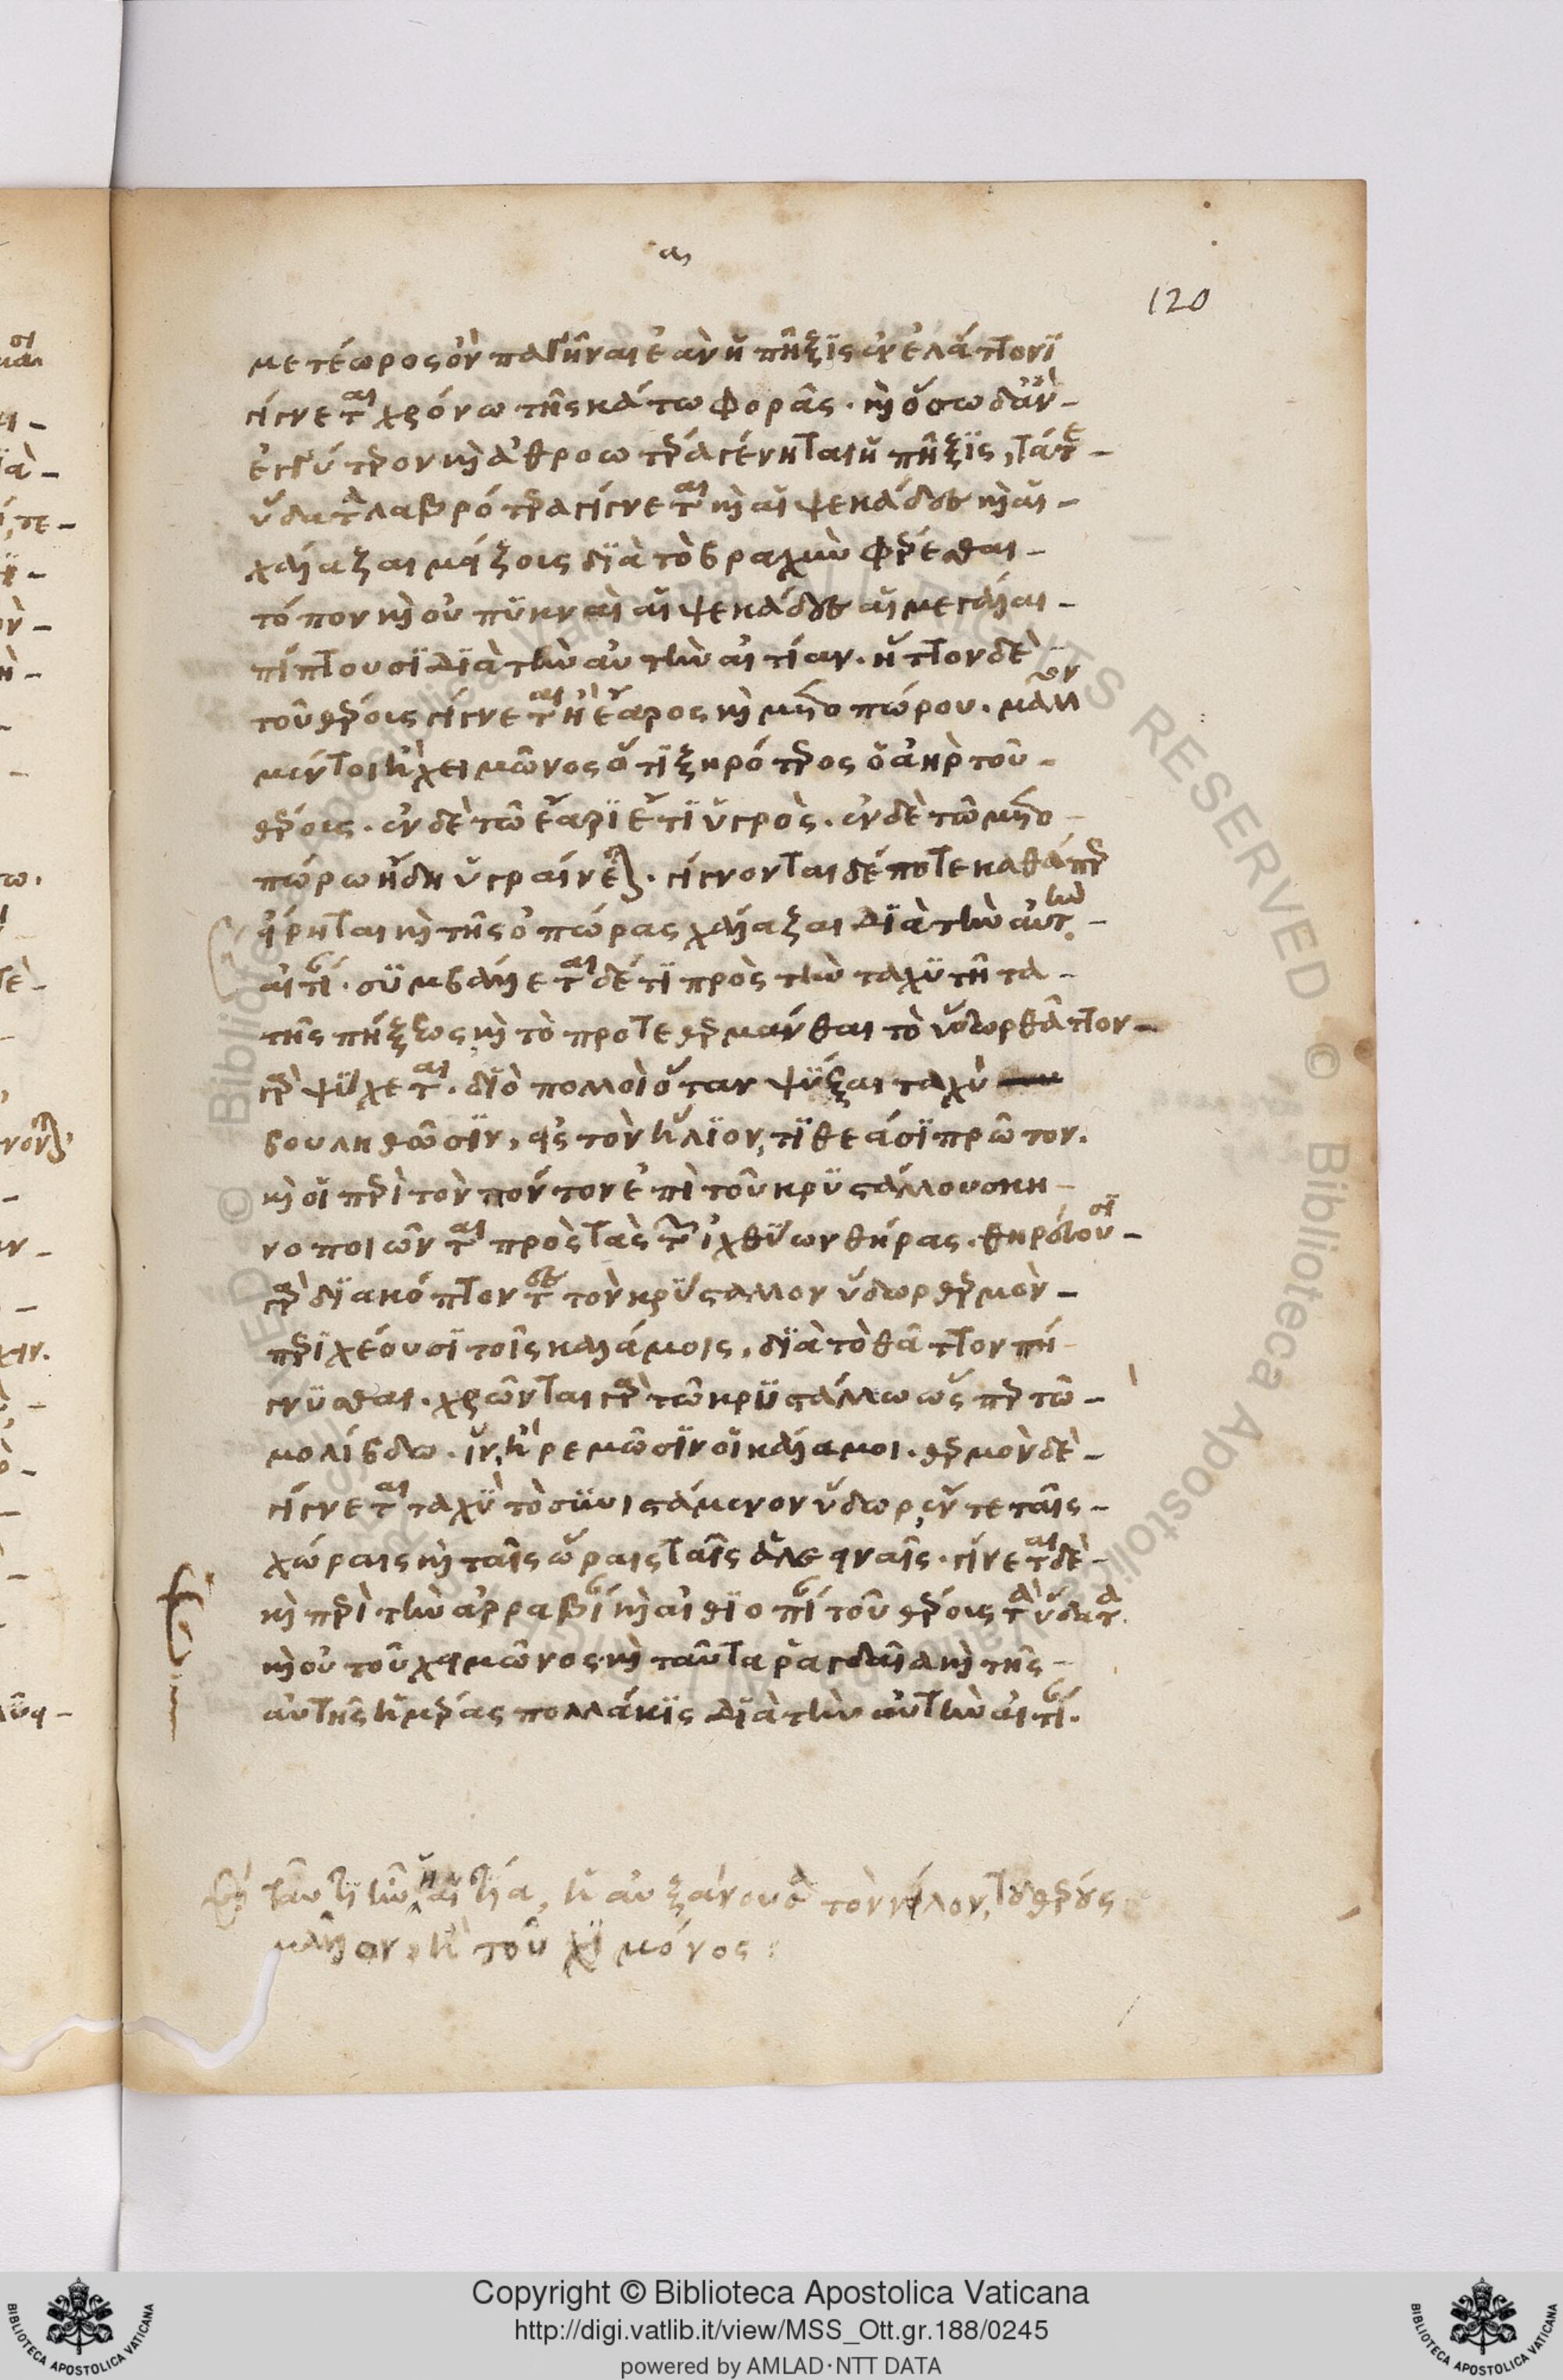 α
120
μετέωρος ὂν παγῆναι ἐὰν ἡ πῆξϊς ἐν ἐλάττονϊ
γίγνεται χρόνω τῆς κάτω φορᾶς. καὶ ὅσω δ' ἂν
ἐγγύτερον καὶ ἀθροω τέρα γένηται ἡ πῆξϊς, τά τε
ὕδατα λαβρότερα γίγνεται καὶ αἱ ψεκάδες καὶ αἱ
χάλαζαι μείζους δϊὰ τὸ βραχὺν φέρεσθαι
τόπον καὶ οὐ πϋκναὶ αἱ ψεκάδες αἱ μεγάλαι
πίπτουσϊ δϊὰ τὴν αὐτὴν αἰτίαν. ἧττον δὲ
τοῦ θέρους γίγνεται ἢ ἔαρος καὶ μετοπώρου. μᾶλλον
μέντοι ἢ χειμῶνος ὅτϊ ξηρότερος ὁ ἀὴρ τοῦ
θέρους. ἐν δὲ τῶ ἔαρϊ ἔτϊ ὑγρός. ἐν δὲ τῶ μετο
πώρω ἤδη ὑγραίνεται. γίγνονται δέ ποτε καθάπερ
εἴρηται καὶ τῆς ὀπώρας χάλαζαι δϊὰ τὴν αὐτὴν
αἰτίαν. σϋμβάλλεται δέ τϊ πρὸς τὴν ταχϋτῆτα
τῆς πήξεως καὶ τὸ προτεθερμάνθαι τὸ ὕδωρ θᾶττον
γὰρ ψΰχεται. δϊὸ πολλοὶ ὅταν ψῦξαι ταχὺ
βουληθῶσϊν, εἰς τὸν ἥλϊον, τϊθεάσϊ πρῶτον.
καὶ οἱ περὶ τὸν πόντον ἐπὶ τοῦ κρϋστάλλου σκη
νοποιῶνται πρὸς τὰς τῶν ἰχθΰων θήρας. θηρεύουσϊ
γὰρ δϊακόπτοντες τὸν κρΰσταλλον ὕδωρ θερμὸν
περϊχέουσϊ τοῖς καλάμοις, δϊὰ τὸ θᾶττον πή
γνϋσθαι. χρῶνται γὰρ τῶ κρϋστάλλω ὥσπερ τῶ
μολίβδω. ἵν' ἠρεμῶσϊν οἱ κάλαμοι. θερμὸν δὲ
γίγνεται ταχϋ τὸ σϋνιστάμενον ὕδωρ, ἔν τε ταῖς
χώραις καὶ ταῖς ὥραις ταῖς ἀλεειναῖς. γίνεται δὲ
καὶ περὶ τὴν ἀρραβίαν καὶ αἰθϊοπίαν τοῦ θέρους τὰ ὕδατα
καὶ οὐ τοῦ χειμῶνος καὶ ταῦτα ῥαγδαῖα καὶ τῆς
αὐτῆς ἡμέρας πολλάκϊς δϊὰ τὴν αὐτὴν αἰτίαν.
τὸν νεῖλον, τοῦ θέρους
μᾶλλον, ἢ τοῦ χϊμόνος:
Copyright © Biblioteca Apostolica Vaticana
http://digi.vatlib.it/view/MSS_Ott.gr.188/0245
powered by AMLAD·NTT DATA